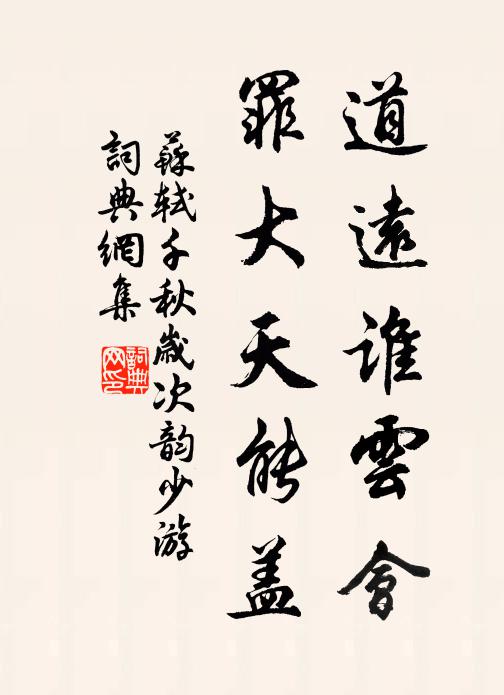 道遠誰雲會
罪大天能蓋
蘇軾千秋歲次韵少游
詞典網集
詞典
网印